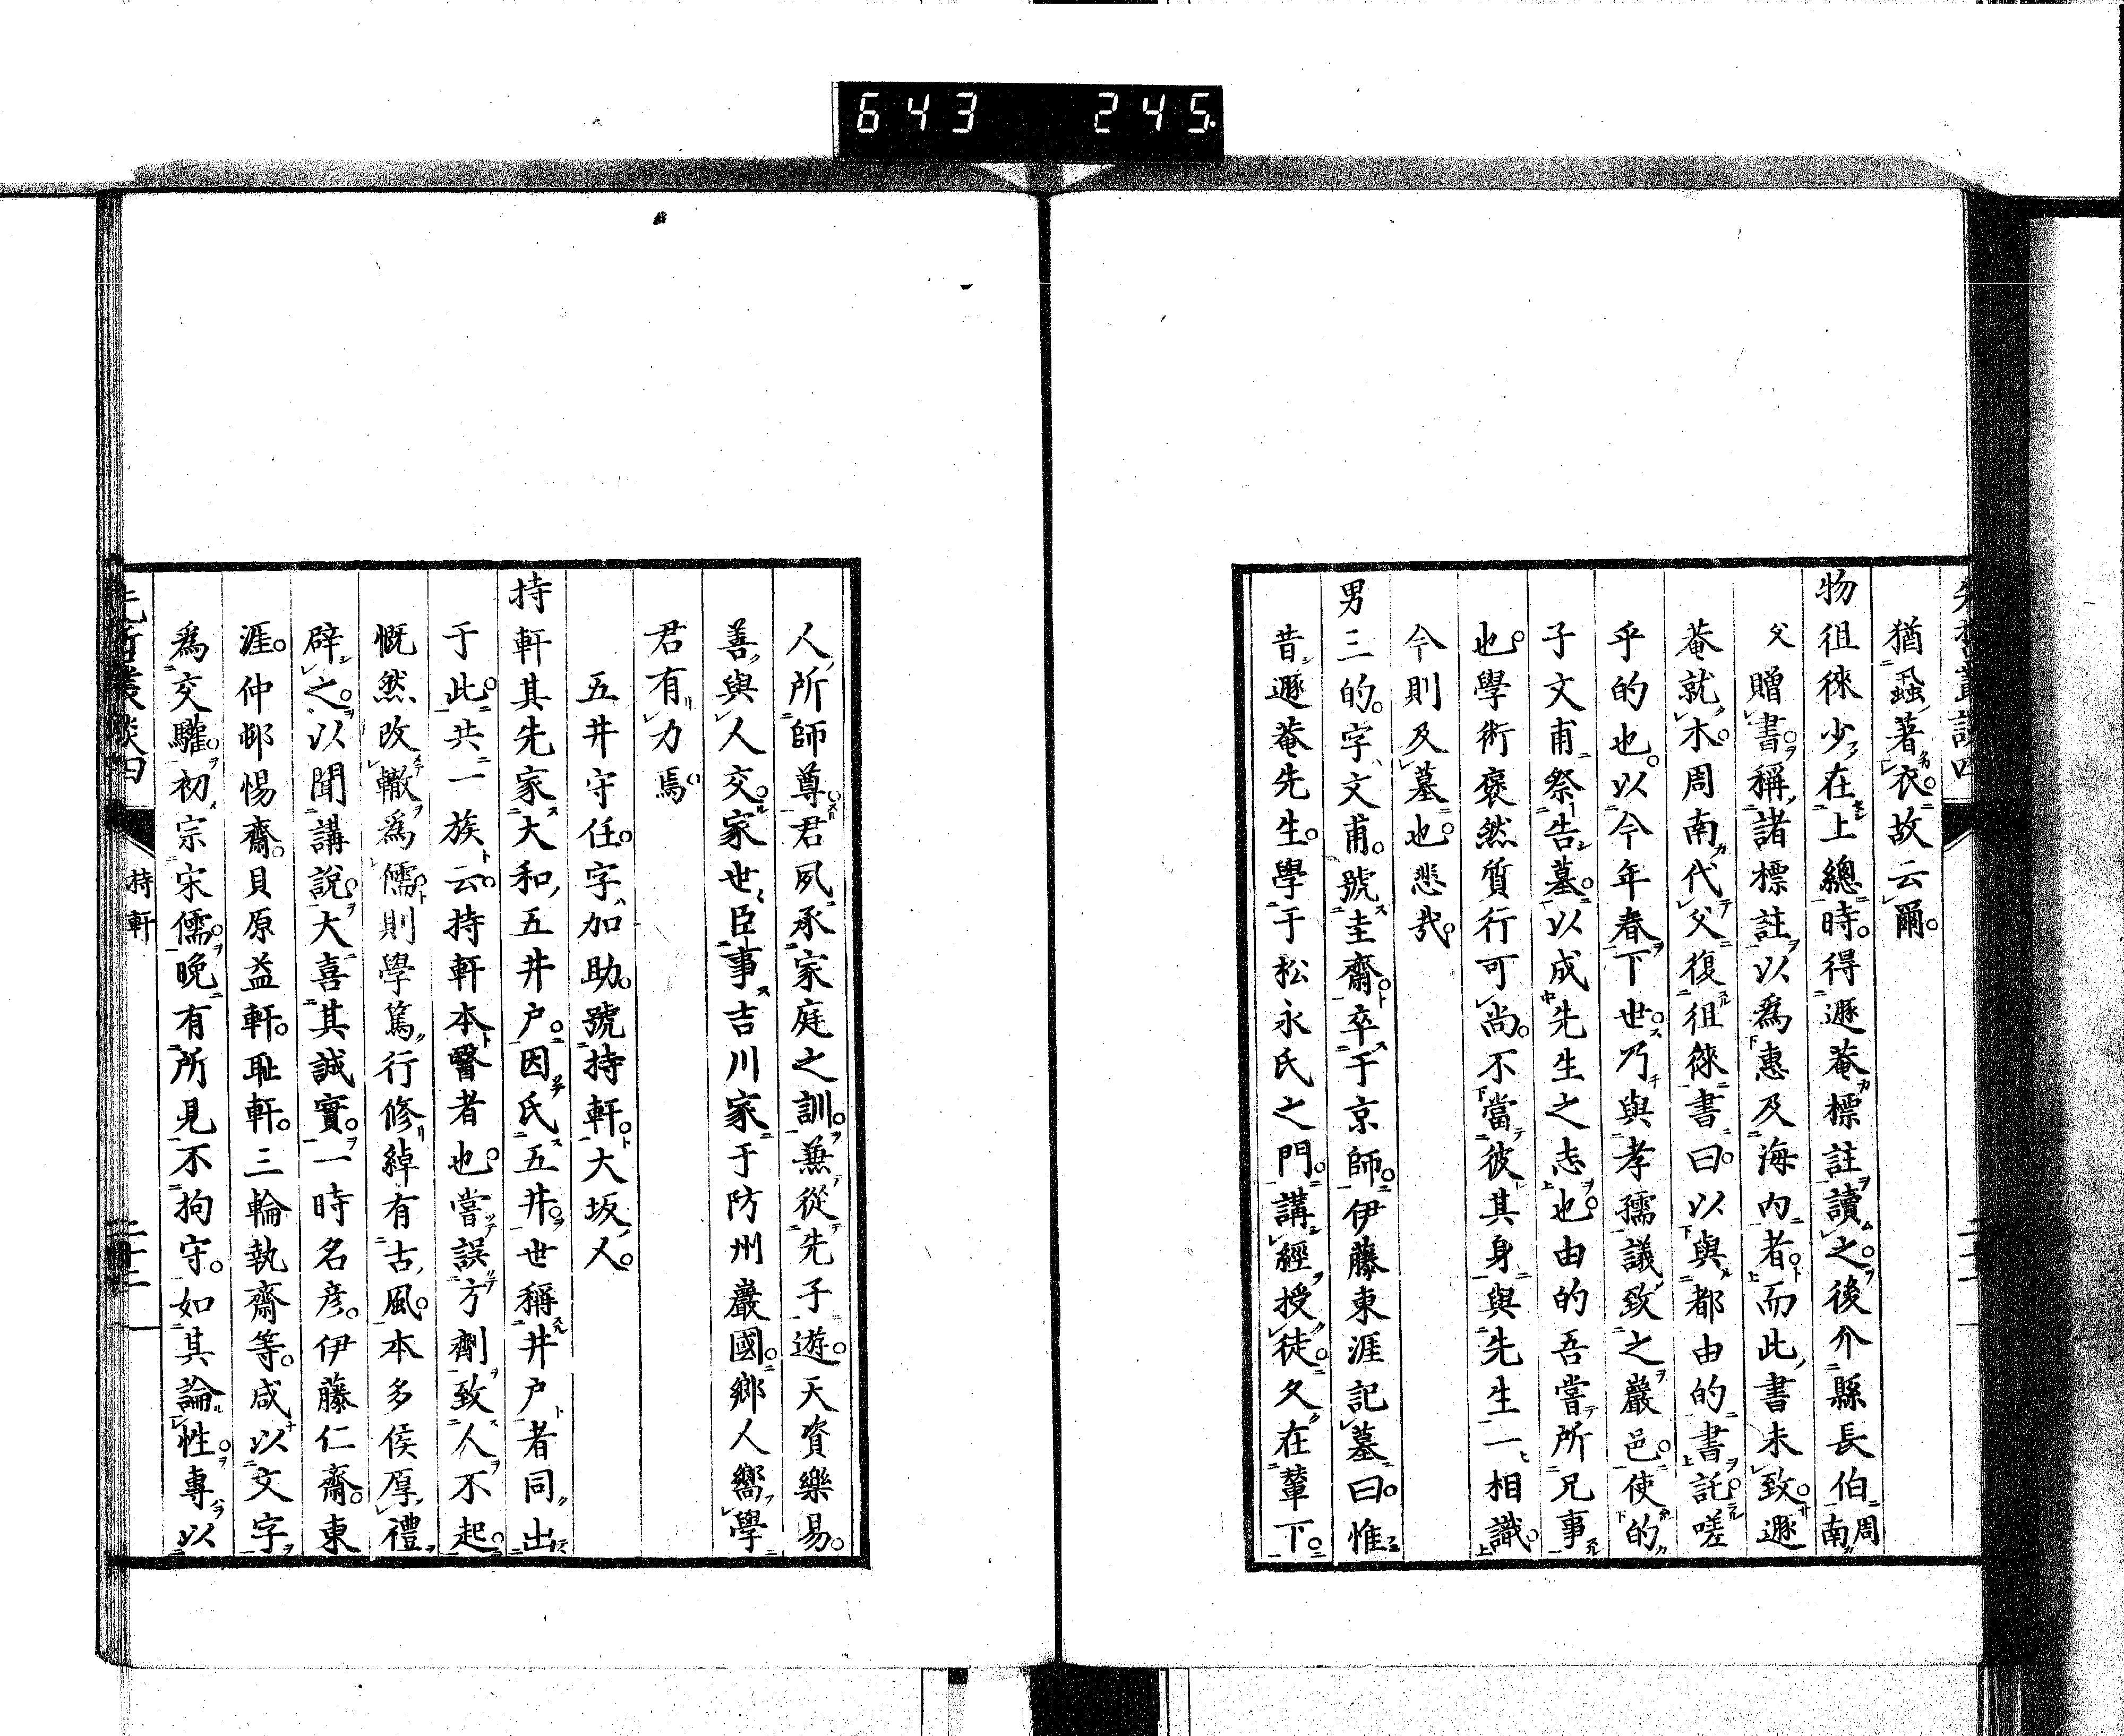 643 245
猶蝨著衣。故云爾。
物徂徠少在上總時。得遯菴標註讀之。後介縣長伯周南
父贈書。稱諸標註以爲惠及海内者。而此書未致。遯
菴就木。周南代父復徂徠書曰。以與都由的書託嗟
乎的也。以今年春下世。乃與孝孺議致之巖邑。使的
子文甫祭告墓。以成先生之志也。由的吾嘗所兄事
也。學術褒然質行可尚。不當彼其身與先生一相識。
今則及墓也。悲哉。
男三的。字文甫。號圭齋。卒于京師。伊藤東涯記墓曰。惟
昔遯菴先生。學于松永氏之門。講經授徒。久在輦下。
人所師尊君夙承家庭之訓。兼從先子遊。天資樂易。
善與人交。家世臣事吉川家于防州巖國。鄕人嚮學
君有力焉
五井守任。字加助。號持軒。大坂人。
持軒其先家大和五井戶。因氏五井。世稱井戶者同出
于此。共一族云。持軒本醫者也。嘗誤方劑致人不起。
慨然改轍爲儒。則學篤行修綽有古風。本多侯厚禮
辟之。以聞講說。大喜其誠實。一時名彦。伊藤仁齋。東
涯。仲邨惕齋。貝原益軒。恥軒。三輪執齋等。咸以文字
爲交驩。初宗宋儒。晩有所見不拘守。如其論性。專以
先哲叢談四 持軒 二十二